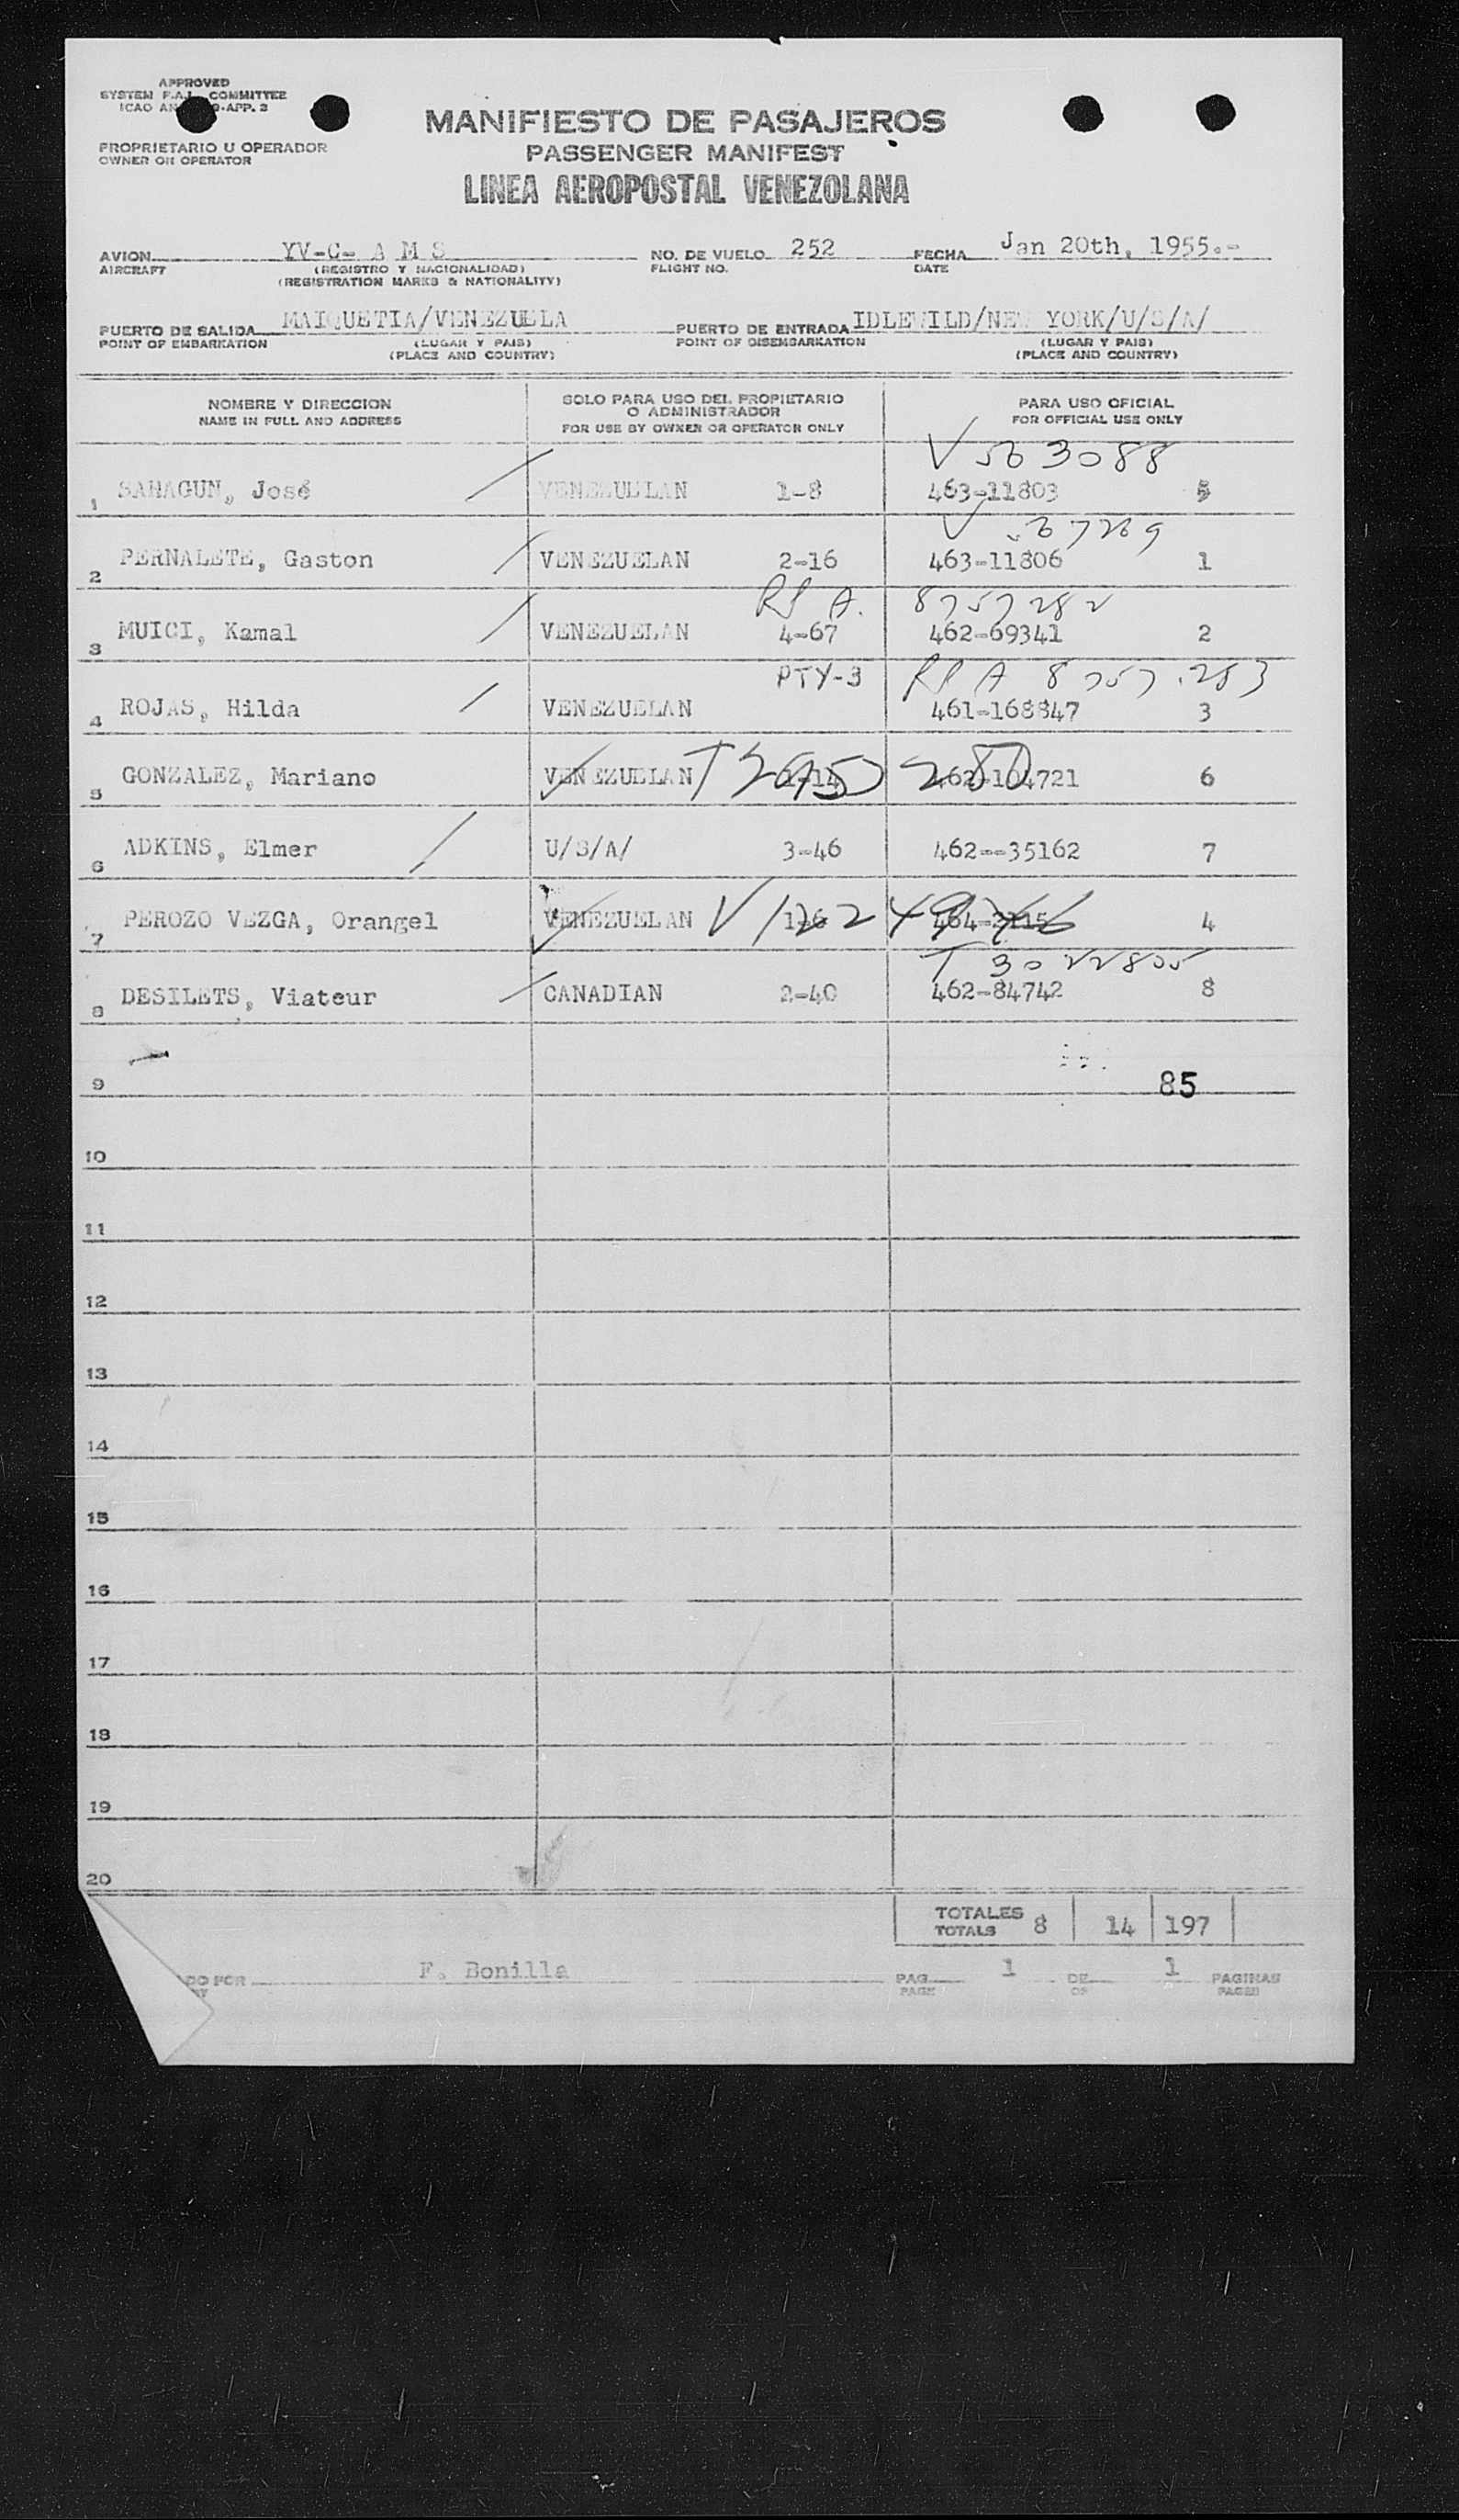 APPROVED
SYSTEM F.A.L. COMMITTEE
ICAO 9-APP. 3
MANIFIESTO DE PASAJEROS
PROPRIETARIO U OPERADOR
OWNER OR OPERATOR
PASSENGER MANIFEST
LINEA AEROPOSTAL VENEZOLANA
AVION YV-C- A M S NO. DE VUELO 252 FECHA Jan 20th, 1955.-
AIRCRAFT (REGISTRO Y NACIONALIDAD) FLIGHT NO. DATE
(REGISTRATION MARKS & NATIONALITY)
PUERTO DE SALIDA MAIQUETIA/VENEZUELA PUERTO DE ENTRADA IDLEWILD/NEW YORK/U/S/A/
POINT OF EMBARKATION (LUGAR Y PAIS) POINT OF DISEMBARKATION (LUGAR Y PAIS)
(PLACE AND COUNTRY) (PLACE AND COUNTRY)
NOMBRE Y DIRECCION SOLO PARA USO DEL PROPIETARIO O ADMINISTRADOR PARA USO OFICIAL
NAME IN FULL AND ADDRESS FOR USE BY OWNER OR OPERATOR ONLY FOR OFFICIAL USE ONLY
V 563088
1 SAHAGUN, José VENEZUELAN 1-8 463-11803 5
2 PERNALETE, Gaston VENEZUELAN 2-16 463-11806 1
8757282
3 MUICI, Kamal VENEZUELAN 4-67 462-69341 2
PTY-3 8757283
4 ROJAS, Hilda VENEZUELAN 461-168847 3
5 GONZALEZ, Mariano VENEZUELAN 6
6 ADKINS, Elmer U/S/A/ 3-46 462--35162 7
7 PEROZO VEZGA, Orangel VENEZUELAN 4
T 3022805
8 DESILETS, Viateur CANADIAN 2-40 462-84742 8
9 85
10
11
12
13
14
15
16
17
18
19
20
TOTALES
TOTALS 8 14 197
DO POR F. Bonilla PAG. 1 DE 1 PAGINAS
PAGE OF PAGES